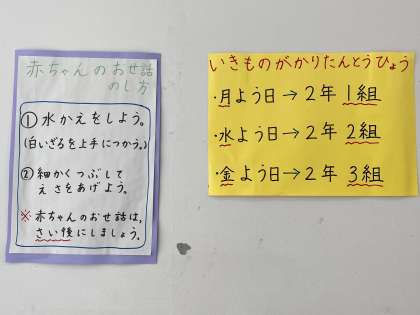 赤ちゃんのおせ話
のし方
① 水かえをしよう。
(白いざるを上手につかう。)
② 細かくつぶして
えさをあげよう。
※ 赤ちゃんのおせ話は、
さい後にしましょう。
いきものがかりたんとうひょう
・月よう日→2年 1組
・水よう日→2年 2組
・金よう日→2年 3組